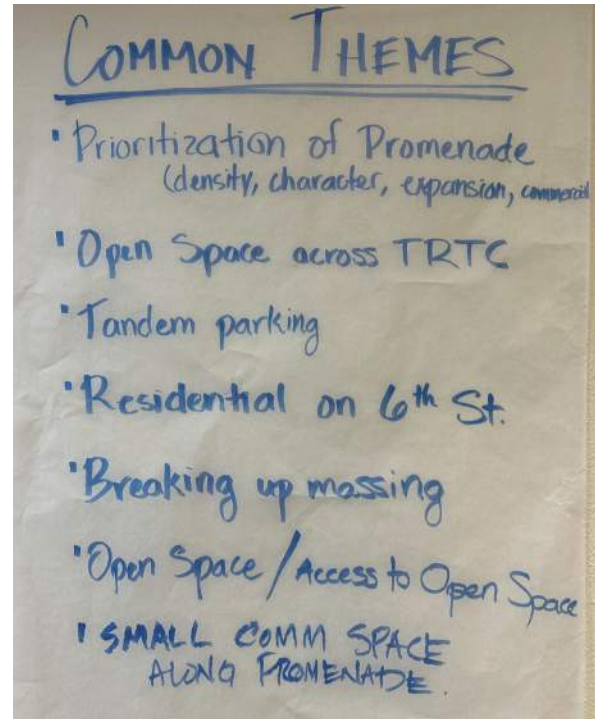 COMMON THEMES
· Prioritization of Promenade
(density, character, expansion, commercial
· Open Space across TRTC
· Tandem parking
· Residential on 6th St.
· Breaking up massing
· Open Space / Access to Open Space
· SMALL COMM SPACE
ALONG PROMENADE.